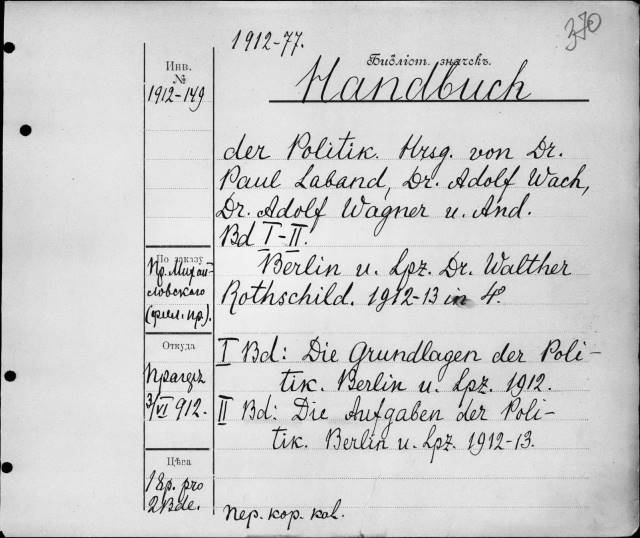 370
1912-77.
Библіот. значекъ.
Handbuch
Инв.
№
1912-149
der Politik. Hrsg. von Dr.
Paul Laband, Dr. Adolf Wach,
Dr. Adolf Wagner u. And.
Bd I-II.
Berlin u. Lpz. Dr. Walther
Rothschild. 1912-13 in 4°.
По заказу
Пр. Михай-
ловского
(фил. пр.).
Откуда
3/VI 912.
I Bd: Die Grundlagen der Poli-
tik. Berlin u. Lpz. 1912.
II Bd: Die Aufgaben der Poli-
tik. Berlin u. Lpz. 1912-13.
Цѣна
18р. pro
2 Bde.
пер. кор. кол.